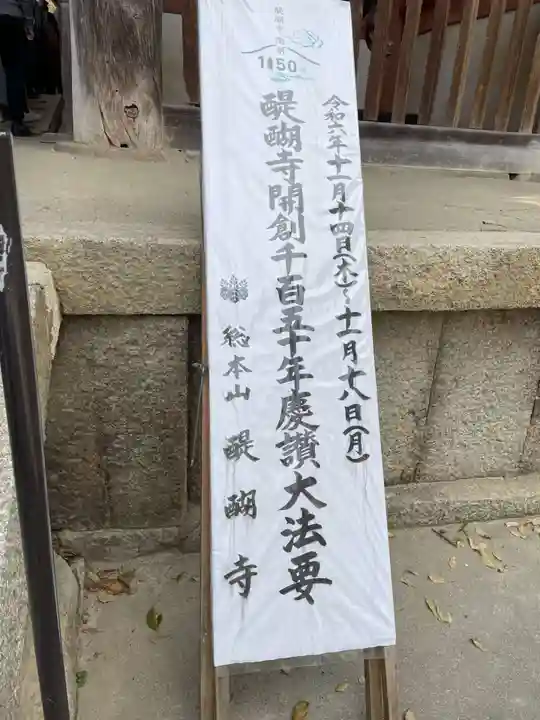 醍醐寺開創
1150
令和六年十一月十四日(木)~十一月十八日(月)
醍醐寺開創千百五十年慶讃大法要
総本山 醍醐寺